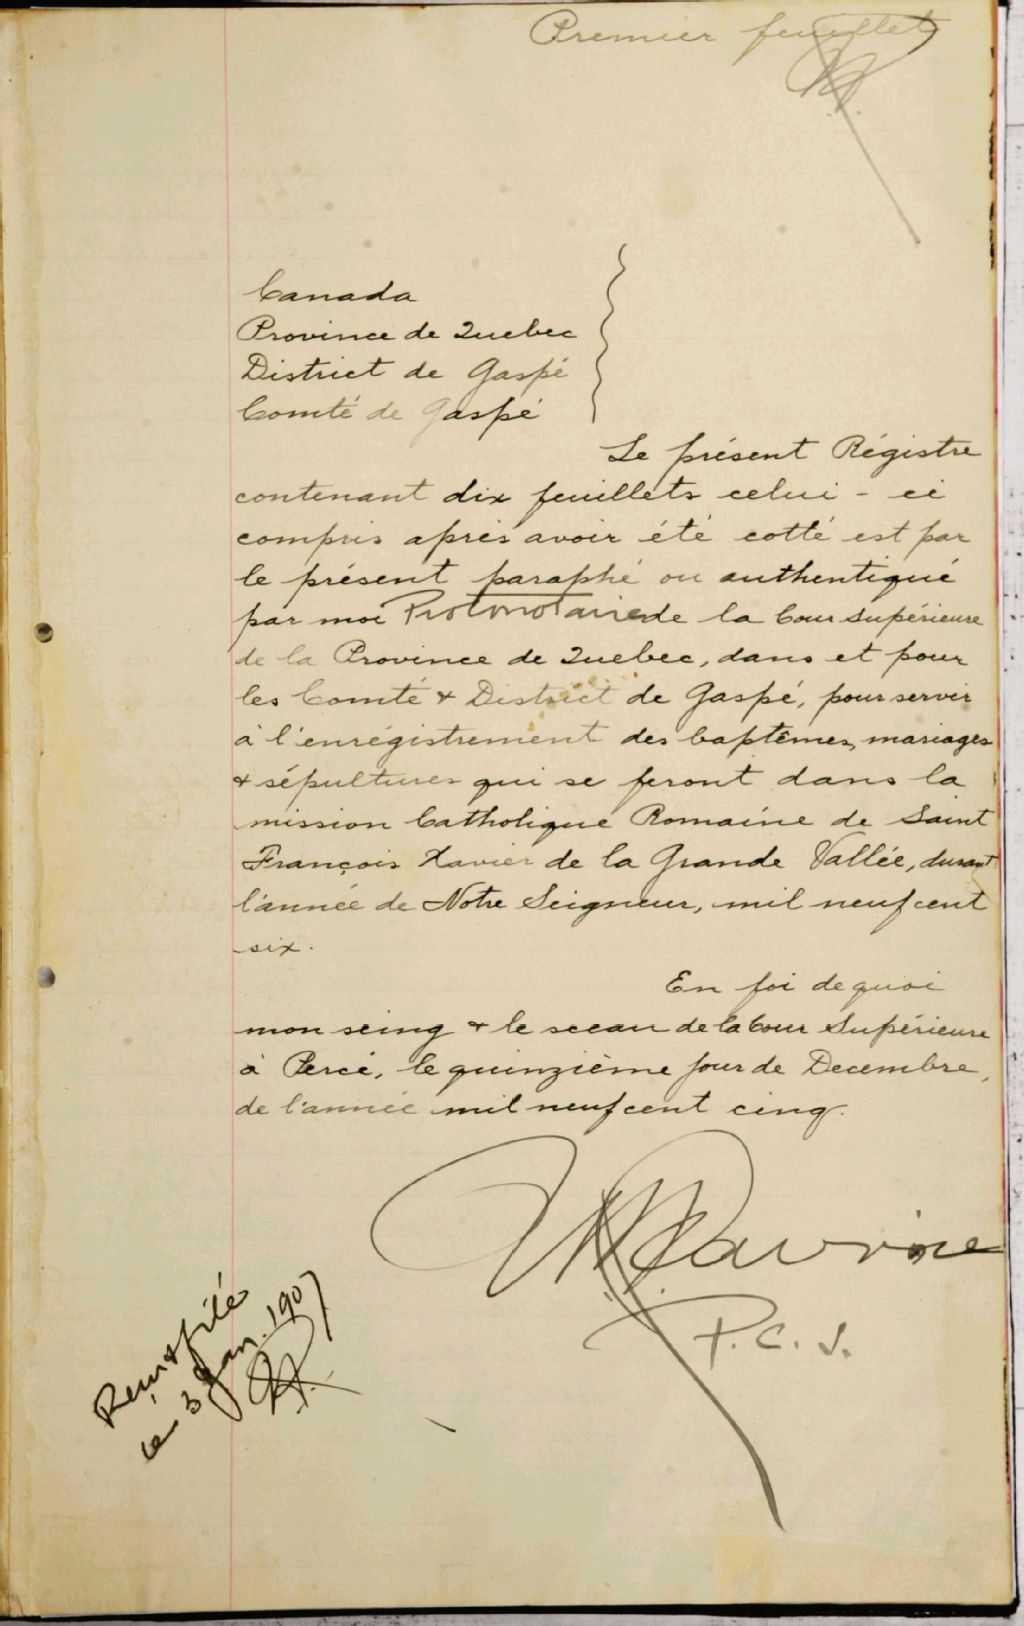 Premier feuillet
Canada
Province de Quebec
District de Gaspé
Comté de Gaspé
Le présent Régistre
contenant dix feuillets celui - ci
compris après avoir été cotté est par
le présent paraphé ou authentiqué
par moi Protonotaire de la Cour Supérieure
de la Province de Quebec, dans et pour
les Comté & District de Gaspé, pour servir
à l'enrégistrement des baptêmes, mariages
& sépultures qui se feront dans la
mission Catholique Romaine de Saint
François Xavier de la Grande Vallée, durant
l'année de Notre Seigneur, mil neuf cent
six.
En foi de quoi
mon seing & le sceau de la Cour Supérieure
à Percé, le quinzième jour de Decembre,
de l'année mil neuf cent cinq.
P. C. S.
Reçu & filé
le 3 Jan. 1907